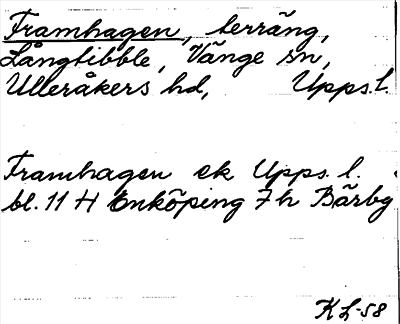 Framhagen, terräng,
Långtibble, Vänge sn,
Ulleråkers hd, Upps. l.
Framhagen ek Upps. l.
bl. 11 H Enköping 7 h Bärby
KL-58